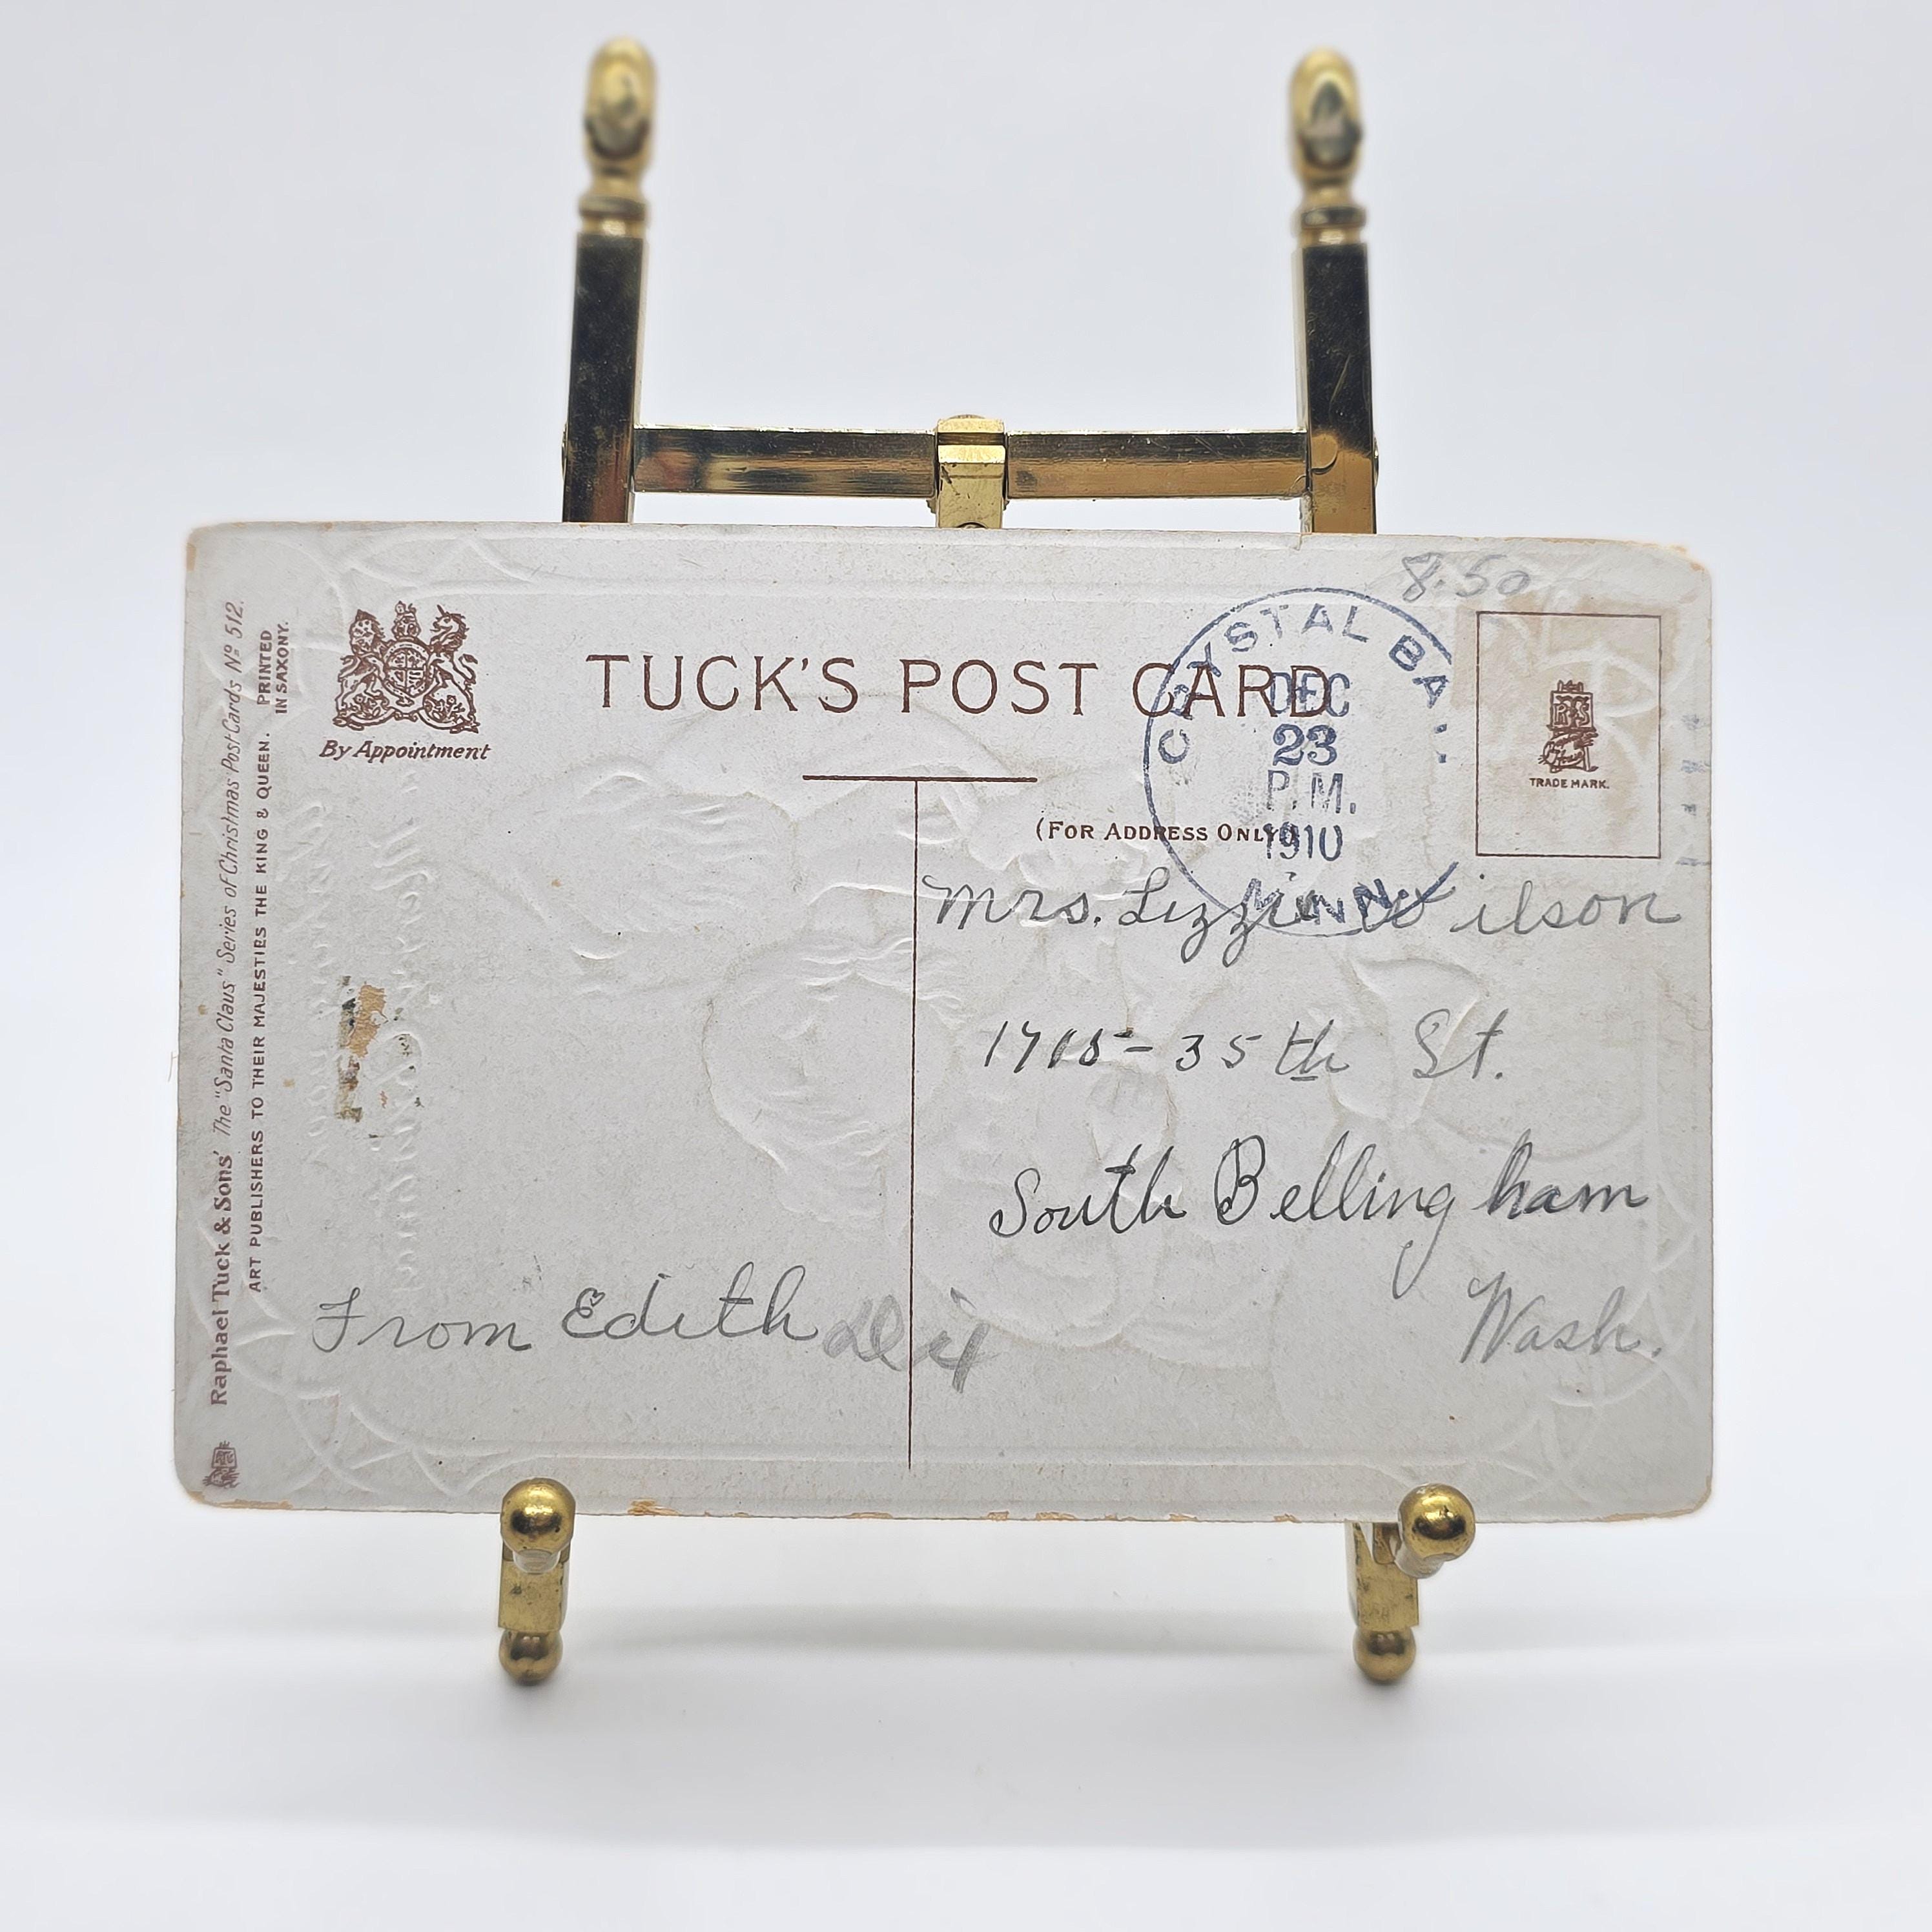 Raphael Tuck & Sons' The "Santa Claus" Series of Christmas Post Cards Nº 512.
ART PUBLISHERS TO THEIR MAJESTIES THE KING & QUEEN.
PRINTED
IN SAXONY.
By Appointment
TUCK'S POST CARD
(FOR ADDRESS ONLY)
8.50
CRYSTAL BA
DEC
23
P.M.
1910
MINN.
R T S
TRADE MARK.
Mrs. Lizzie Wilson
1705-35th St.
South Bellingham
Wash.
From Edith